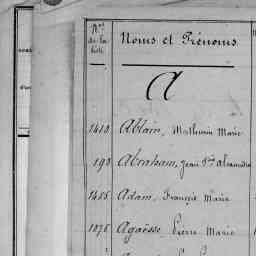 Nos
de la
liste
Noms et Prénoms
A
1410 Ablain, Mathurin Marie
193 Abraham, Jean Alexandre
1455 Adam, François Marie
1075 Agaësse, Pierre Marie